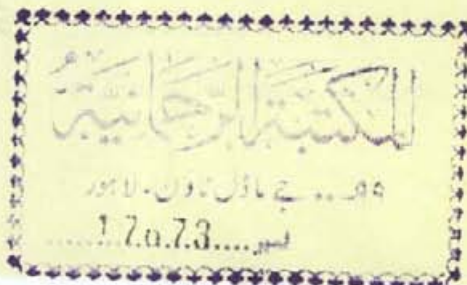 المكتبة الرحمانية
۹۹... جے ماڈل ٹاؤن۔ لاہور
نمبر....17073.........